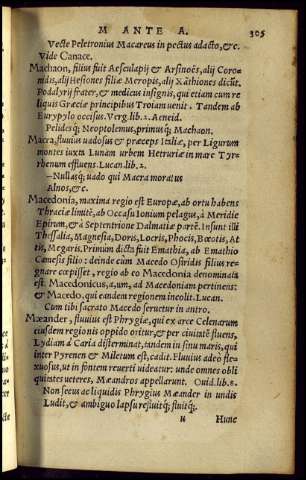 M ANTE A. 305
Vecte Peletronius Macareus in pectus adacto, &c.
Vide Canace.
Machaon, filius fuit Aesculapij & Arsinoës, alij Coro-
nidis, alij Hesiones filiæ Meropis, alij Xāthiones dicūt.
Podalyrij frater, & medicus insignis, qui etiam cum re
liquis Græciæ principibus Troiam uenit. Tandem ab
Eurypylo occisus. Verg. lib. 2. Aeneid.
Pelidesq́; Neoptolemus, primusq́; Machaon.
Macra, fluuius uadosus & præceps Italiæ, per Ligurum
montes iuxta Lunam urbem Hetruriæ in mare Tyr-
rhenum effluens. Lucan. lib. 2.
—Nullasq́; uado qui Macra moratus
Alnos, &c.
Macedonia, maxima regio est Europæ, ab ortu habens
Thraciæ limitē, ab Occasu Ionium pelagus, à Meridie
Epirum, & à Septentrione Dalmatiæ partē. Insunt illi
Thessalia, Magnesia, Doris, Locris, Phocis, Bœotis, At
tis, Megaris. Primùm dicta fuit Emathia, ab Emathio
Cameſis filio: deinde cùm Macedo Osiridis filius reg-
nare cœpisset, regio ab eo Macedonia denominata
est. Macedonicus, a, um, ad Macedoniam pertinens:
& Macedo, qui eandem regionem incolit. Lucan.
Cum tibi sacrato Macedo seruetur in antro.
Mæander, fluuius est Phrygiæ, qui ex arce Celenarum
eiusdem regionis oppido oritur, & per ciuitatē fluens,
Lydiam à Caria disterminat, tandem in sinu maris, qui
inter Pyrenen & Miletum est, cadit. Fluuius adeò fle-
xuosus, ut in fontem reuerti uideatur: unde omnes obli
quintes ueteres, Mæandros appellarunt. Ouid. lib. 8.
Non secus ac liquidis Phrygius Mæander in undis
Ludit, & ambiguo lapsu refluitq́; fluitq́;
u Hunc